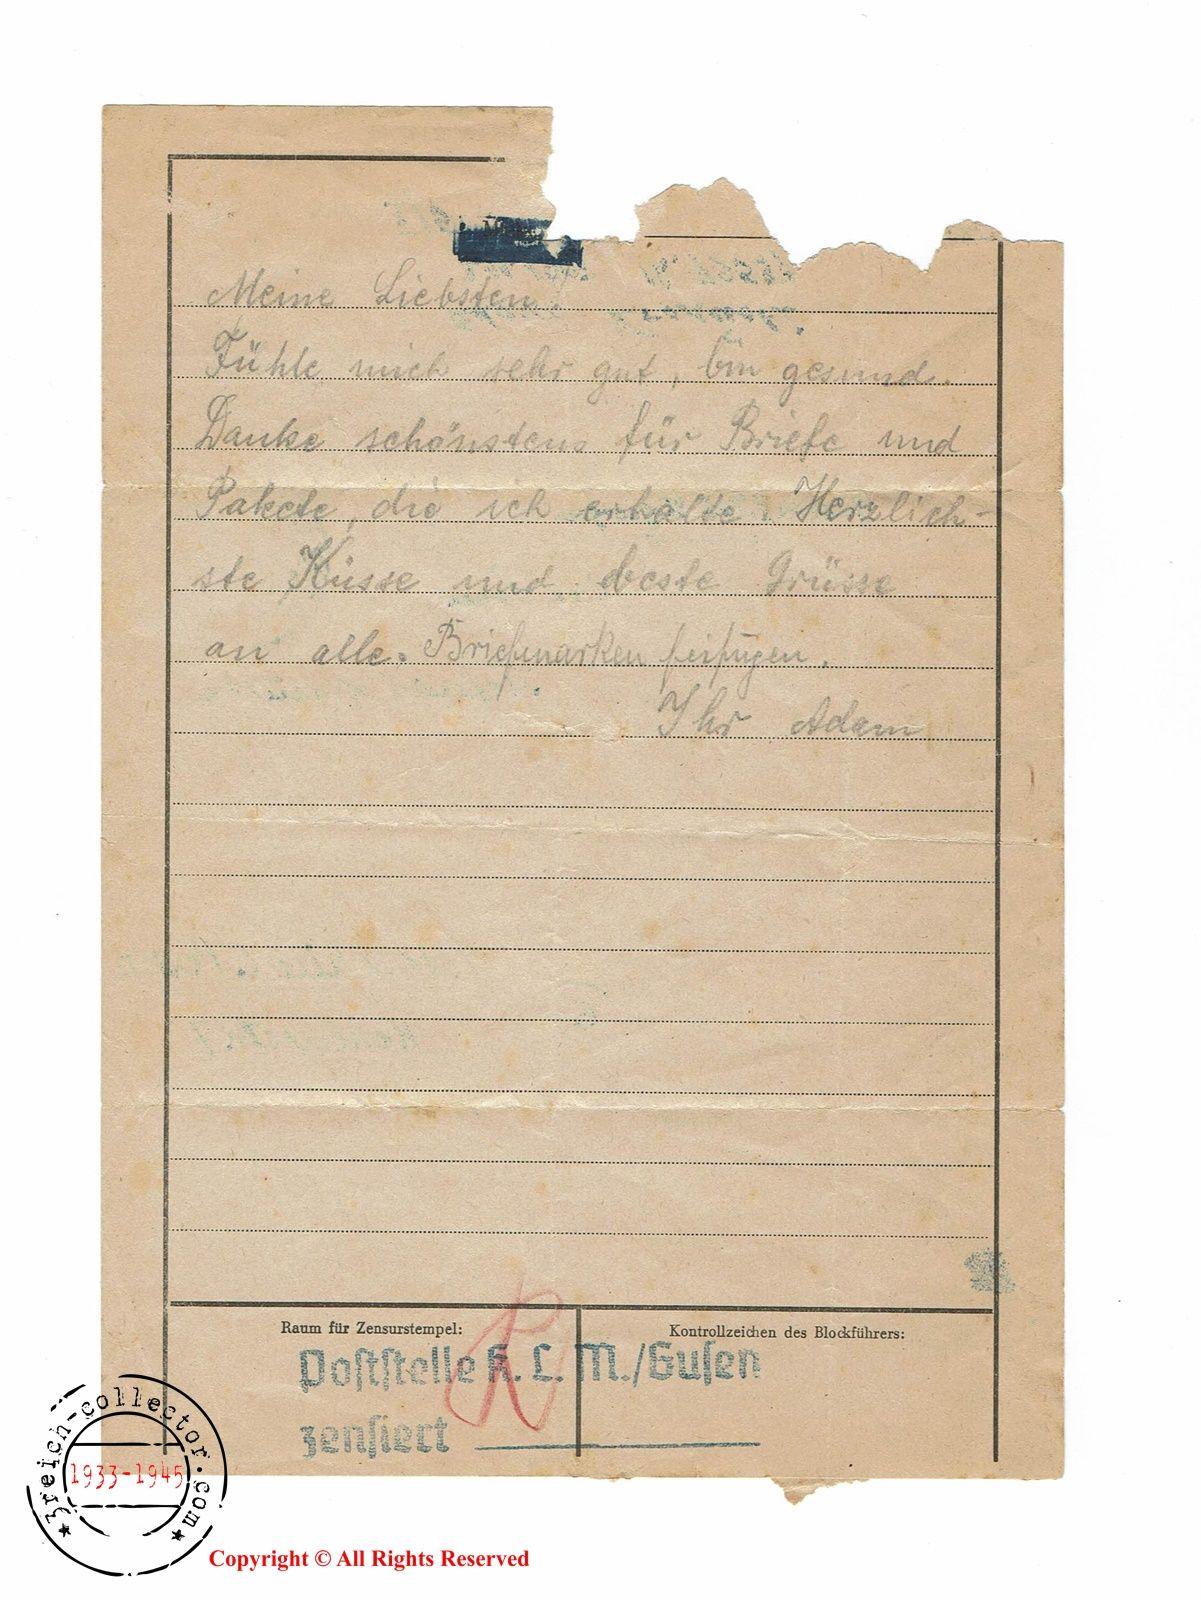 Meine Liebsten!
Fühle mich sehr gut, bin gesund.
Danke schönstens für Briefe und
Pakete, die ich erhalte. Herzlich-
ste Küsse und beste Grüsse
an alle. Briefmarken beifügen.
Ihr Adam
Raum für Zensurstempel:
Kontrollzeichen des Blockführers:
Poststelle K. L. M./Gusen
zensiert
3reich-collector.com
1933-1945
Copyright © All Rights Reserved